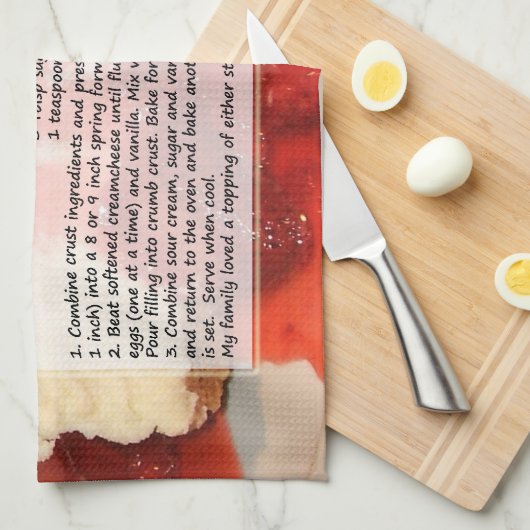 3 Tbsp su
1 teaspoon
1. Combine crust ingredients and pres
1 inch) into a 8 or 9 inch spring form
2. Beat softened creamcheese until flu
eggs (one at a time) and vanilla. Mix
Pour filling into crumb crust. Bake for
3. Combine sour cream, sugar and van
and return to the oven and bake anot
is set. Serve when cool.
My family loved a topping of either st